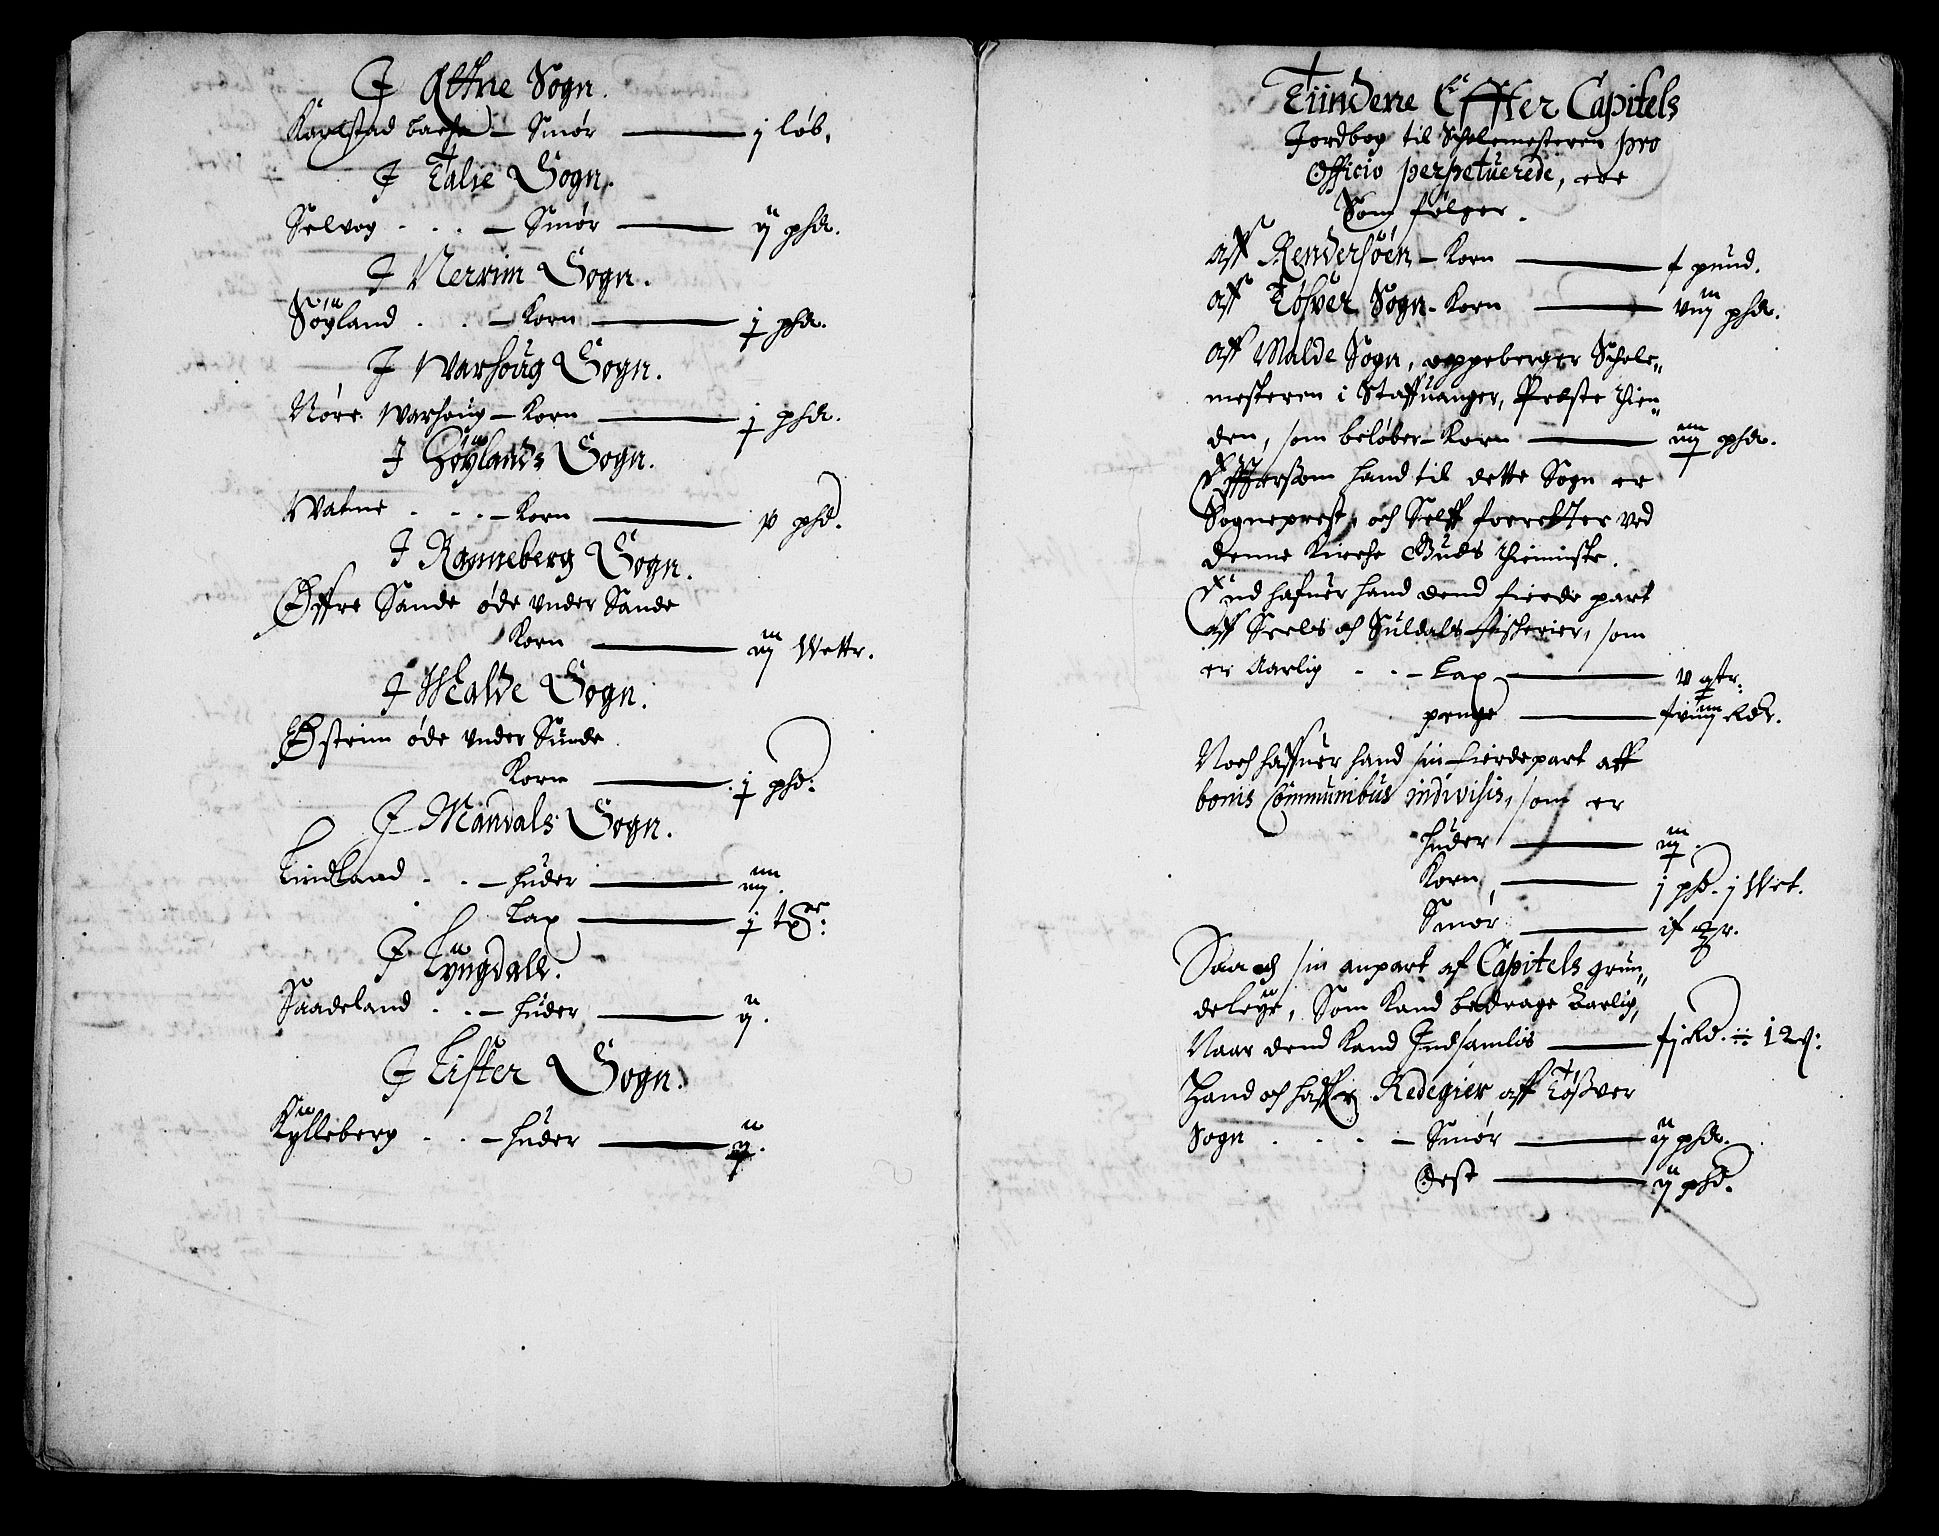 J Ethne Sogn.
Karlstad backe – Smør — j løb.
J Talie Sogn.
Selvog – Smør — ij phd.
J Nerrim Sogn.
Søyland – Korn — j phd.
J Warhoug Sogn.
Nore Warhoug – Korn — j phd.
J Høylands Sogn.
Watne – Korn — v phd.
J Ranneberg Sogn.
Øffre Sande øde vnder Sande
Korn — iij Wettr.
J Malde Sogn.
Østeim øde vnder Sunde
Korn — j phd.
J Mandals Sogn.
Lindland – huder — iiij.
Lax — j tdr:
J Lyngdall.
Saadeland – huder — ij.
J Lister Sogn.
Kylleberg – huder — ij.
Tiindene Effter Capitels
Jordbog til Scholemesteren pro
Officio perpetuerede, ere
Som følger.
aff Rendersöen – Korn — pund.
aff Tösver Sogn – Korn — viij phd.
aff Malde Sogn, oppeberger Schole-
mesteren i Staffuanger, Preste thien-
den, som beløber – Korn — phd.
Effterssom hand til dette Sogn er
Sogneprest, och Self forretter ved
denne Kircke Guds thieniste.
End hafuer hand dend fierde part
aff Seels och Suldals fiskerier, som
er Aarlig – Lax — v
penge — Rdr.
Noch haffuer hand sin fierdepart aff
bonis Communibus indivisis, som er
huder — iij.
Korn — j phd. j Wet.
Smør —
Saa och sin anpart af Capitels grun-
deleye, Som Kand bedrage Aarlig,
Naar dend Kand Indsamlis — Rd. 12 ß:
Hand och haffr Redegier aff Tößver
Sogn – Smør — ij phd.
Oest — ij phd.